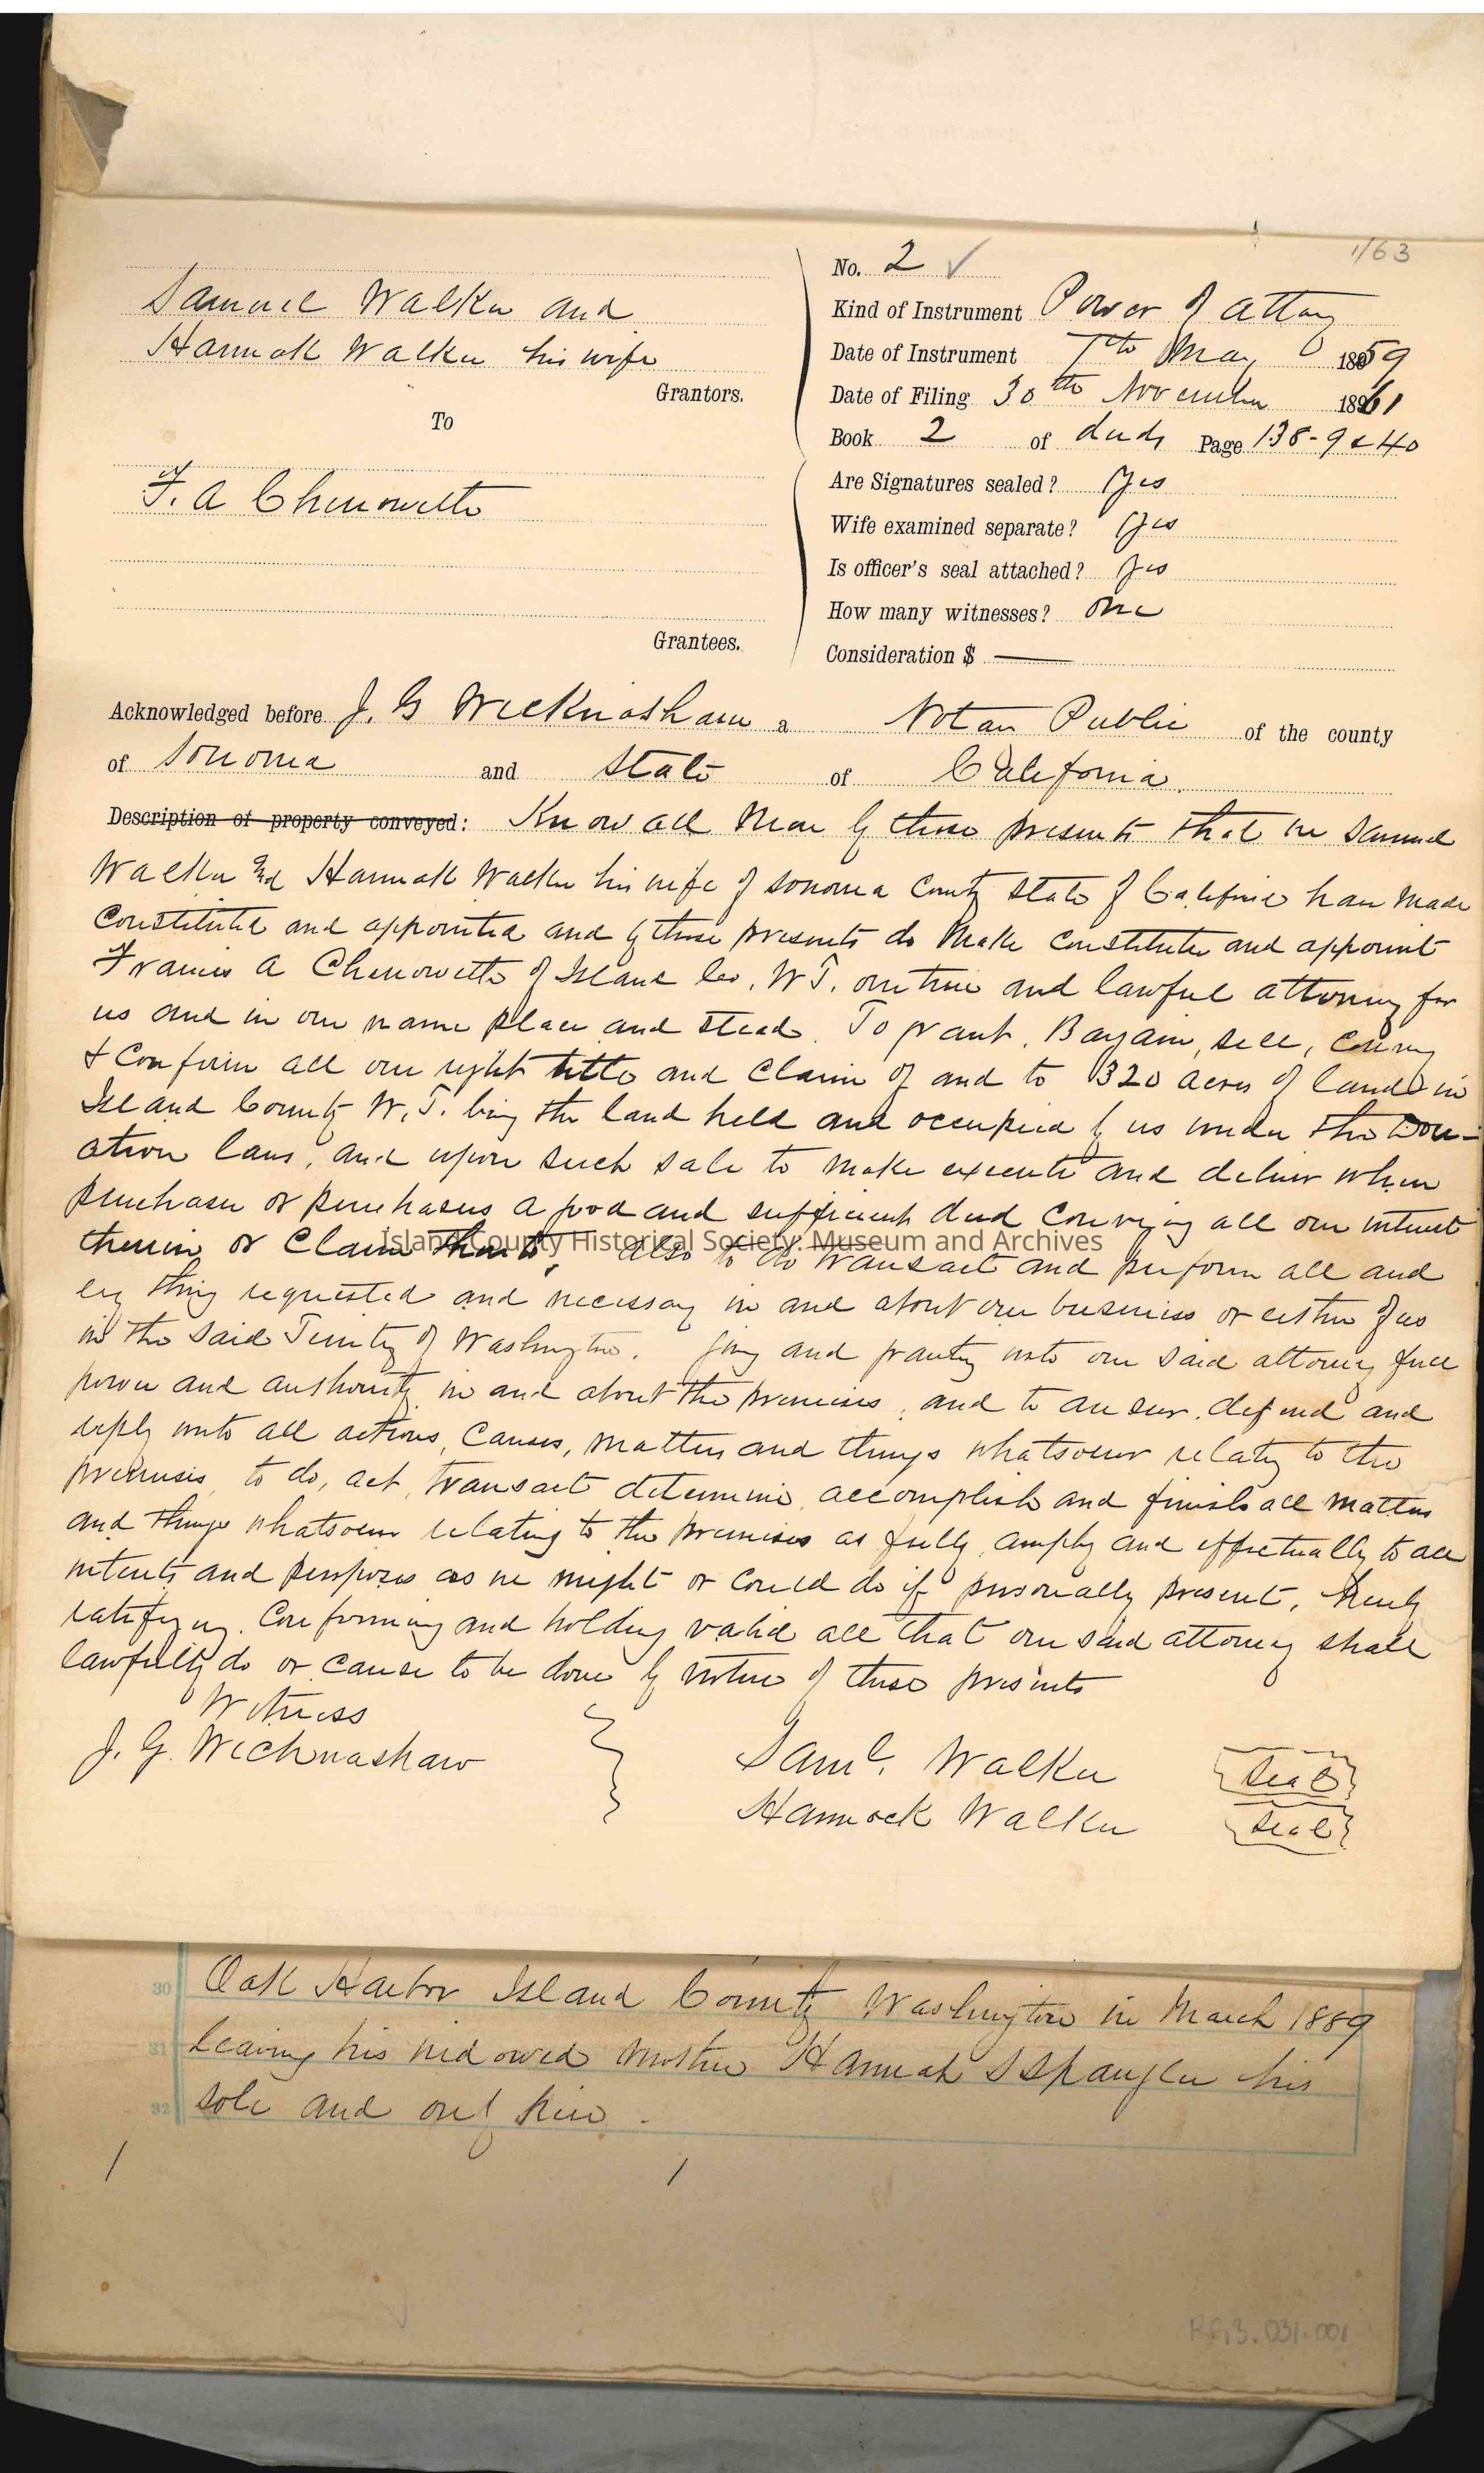 1/63
No. 2 ✓
Samuel Walker and
Kind of Instrument Power of Attony
Hannah Walker his wife
Date of Instrument 7th May 1859
Grantors.
Date of Filing 30th November 1861
To
Book 2 of deeds Page 138-9 & 40
F. A Chenoweth
Are Signatures sealed? Yes
Wife examined separate? Yes
Is officer's seal attached? Yes
How many witnesses? One
Grantees.
Consideration $ —
Acknowledged before J. G Wicknasham a Notary Public of the county
of Sonoma and State of California.
Description of property conveyed: Know all Men by these presents that we Samuel
Walker and Hannah Walker his wife of Sonoma County State of California have Made
Constituted and appointed and by these presents do Make Constitute and appoint
Francis A Chenoweth of Island Co, W T. our true and lawful attorney for
us and in our name place and stead. To grant, Bargain, sell, Convey
& Confirm all our right title and Claim of and to 320 acres of land in
Island County W. T. being the land held and occupied by us under the Don-
ation laws, and upon such sale to make execute and deliver when
purchaser or purchasers a good and sufficient deed conveying all our interest
therein or Claim thereto, also to do transact and perform all and
Island County Historical Society: Museum and Archives
every thing requested and necessary in and about our business or either of us
in the said Territy of Washington. Giving and granting unto our said attorney full
power and authority in and about the premises, and to answer, defend and
reply unto all actions, Causes, matters and things whatsoever relating to the
premises, to do, act, transact determine, accomplish and finish all matters
and things whatsoever relating to the premises as fully, amply and effectually to all
intents and purposes as we might or could do if personally present, hereby
ratifying, Confirming and holding valid all that our said attorney shall
lawfully do or cause to be done by virtue of these presents
Witness
J. G. Wicknashaw
Saml. Walker Seal
Hannah Walker Seal
30 Oak Harbor Island County Washington in March 1889
31 leaving his widowed mother Hannah S Spangler his
32 sole and only heir.
RG13.031.001